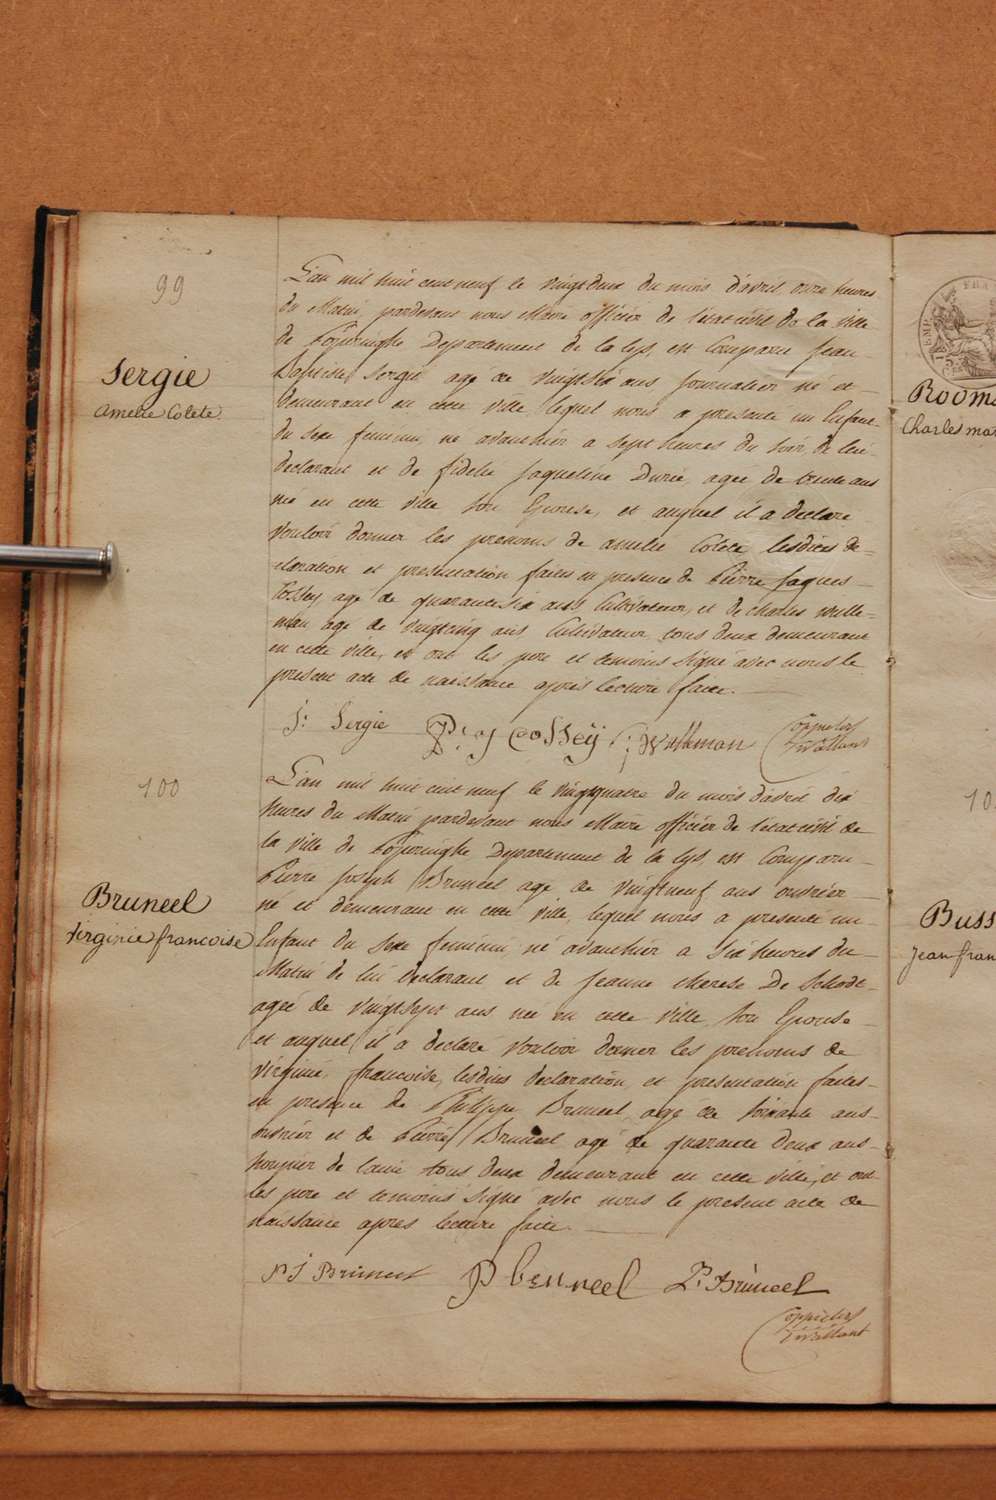 99
Sergie
Amelie Colete
L'an mil huit cent neuf le vingt deux du mois d'avril onze heures
du Matin pardevant nous Maire officier de l'etat civil de la ville
de Poperinghe Departement de la Lys, est Comparu Jean
Baptiste Sergié agé de vingt six ans journalier né et
demeurant en cette ville, lequel nous a presenté un Enfant
du sexe feminin, né avanthier a sept heures du soir, de lui
declarant et de fidelie Jaqueline Durié, agée de trente ans
née en cette ville son Epouse, et auquel il a declaré
vouloir donner les prenoms de amelie Colete lesdites de-
claration et presentation faites en presence de Pierre Jaques
Cossey agé de quarante six ans Cultivateur, et de charles wulle-
man agé de vingt cinq ans Cultivateur tous deux demeurant
en cette ville, et ont les pere et temoins signé avec nous le
present acte de naissance après lecture faite.
J: Sergie P: j Cossey C: Wulleman
100
Bruneel
virginie francoise
L'an mil huit cent neuf le vingt quatre du mois d'avril dix
heures du Matin pardevant nous Maire officier de l'etat civil de
la ville de Poperinghe Departement de la Lys, est Comparu
Pierre Joseph Bruneel agé de vingt neuf ans ouvrier
né et demeurant en cette ville, lequel nous a presenté un
Enfant du sexe feminin, né avanthier a six heures du
Matin de lui declarant et de Jeanne Therese De Schodt
agée de vingt sept ans née en cette ville son Epouse
et auquel il a declaré vouloir donner les prenoms de
virginie francoise, lesdites declaration, et presentation faites
en presence de Philippe Bruneel agé de soixante ans
ouvrier et de Pierre Bruneel agé de quarante deux ans
tous deux demeurant en cette ville, et ont
les pere et temoins signé avec nous le present acte de
naissance apres lecture faite.
P J Bruneel P bruneel P: Bruneel
Rooms
Charles
Buss
Jean fran